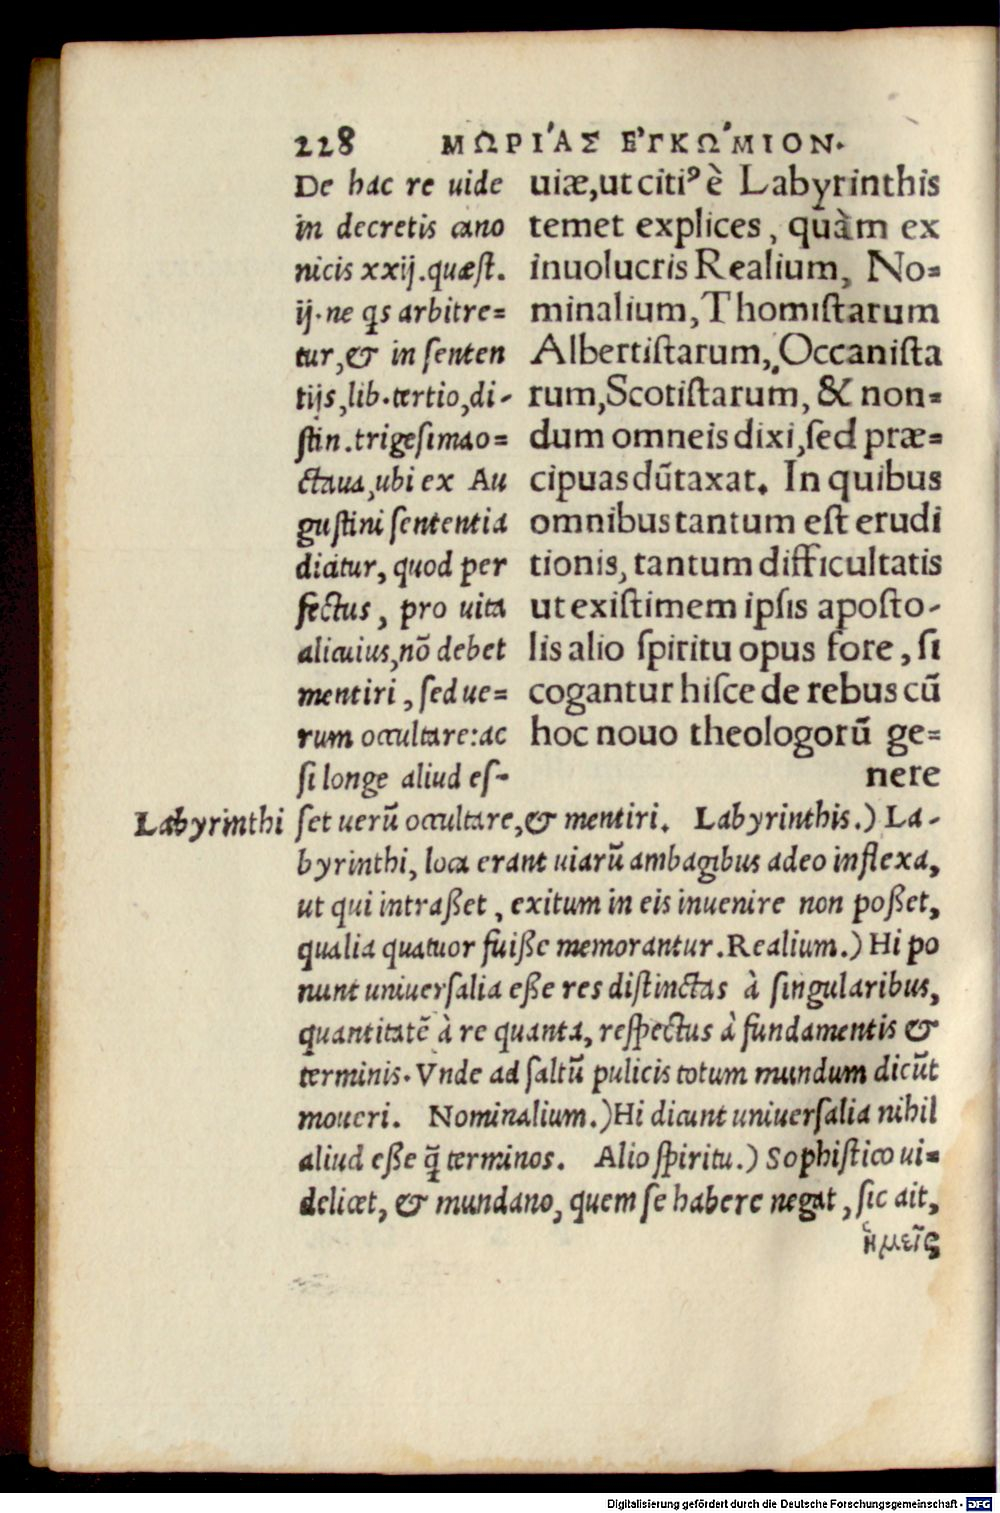 228 ΜΩΡΊΑΣ ΕʼΓΚΩʹΜΙΟΝ.
uiæ, ut citiꝰ è Labyrinthis
temet explices, quàm ex
inuolucris Realium, No=
minalium, Thomistarum
Albertistarum, Occanista
rum, Scotistarum, & non=
dum omneis dixi, sed præ=
cipuas dũtaxat. In quibus
omnibus tantum est erudi
tionis, tantum difficultatis
ut existimem ipsis aposto-
lis alio spiritu opus fore, si
cogantur hisce de rebus cũ
hoc nouo theologorũ ge=
nere
De hac re uide
in decretis cano
nicis xxij. quæst.
ij. ne qs arbitre=
tur, & in senten
tijs, lib. tertio, di-
stin. trigesima o=
ctaua, ubi ex Au
gustini sententia
dicitur, quod per
fectus, pro uita
alicuius, nõ debet
mentiri, sed ue=
rum occultare: ac
si longe aliud es-
Labyrinthi
set uerũ occultare, & mentiri. Labyrinthis.) La-
byrinthi, loca erant uiarũ ambagibus adeo inflexa,
ut qui intraßet, exitum in eis inuenire non poßet,
qualia quatuor fuiße memorantur. Realium.) Hi po
nunt uniuersalia eße res distinctas à singularibus,
quantitatẽ à re quanta, respectus à fundamentis &
terminis. Vnde ad saltũ pulicis totum mundum dicũt
moueri. Nominalium.) Hi dicunt uniuersalia nihil
aliud eße q̃ terminos. Alio spiritu.) Sophistico ui=
delicet, & mundano, quem se habere negat, sic ait,
ἡμεῖς
Digitalisierung gefördert durch die Deutsche Forschungsgemeinschaft - DFG